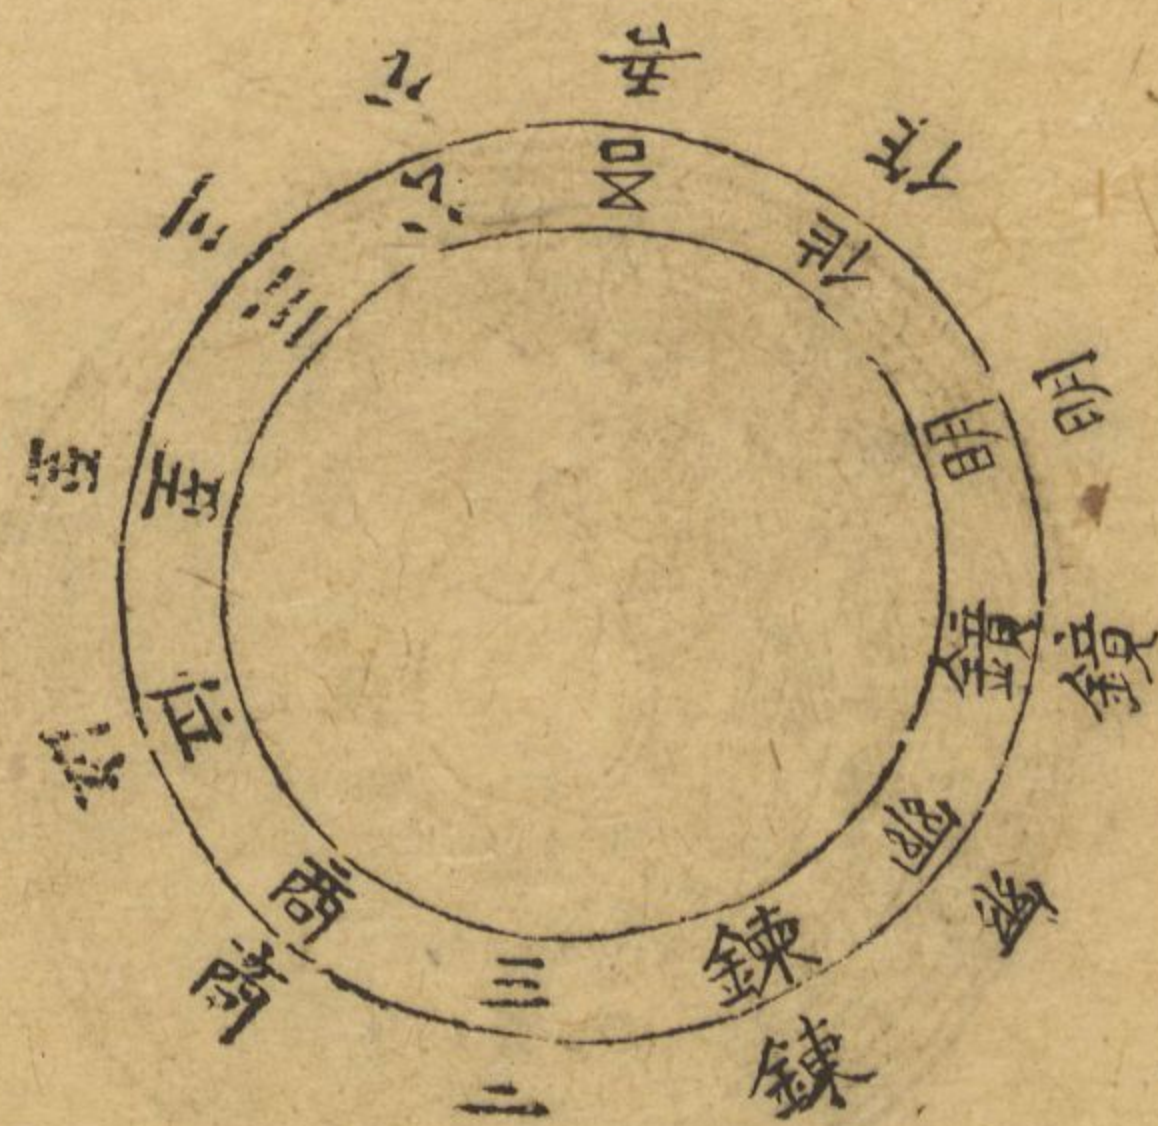 吾作明鏡幽鍊三商位至三公
吾作明鏡幽鍊二商位至三公